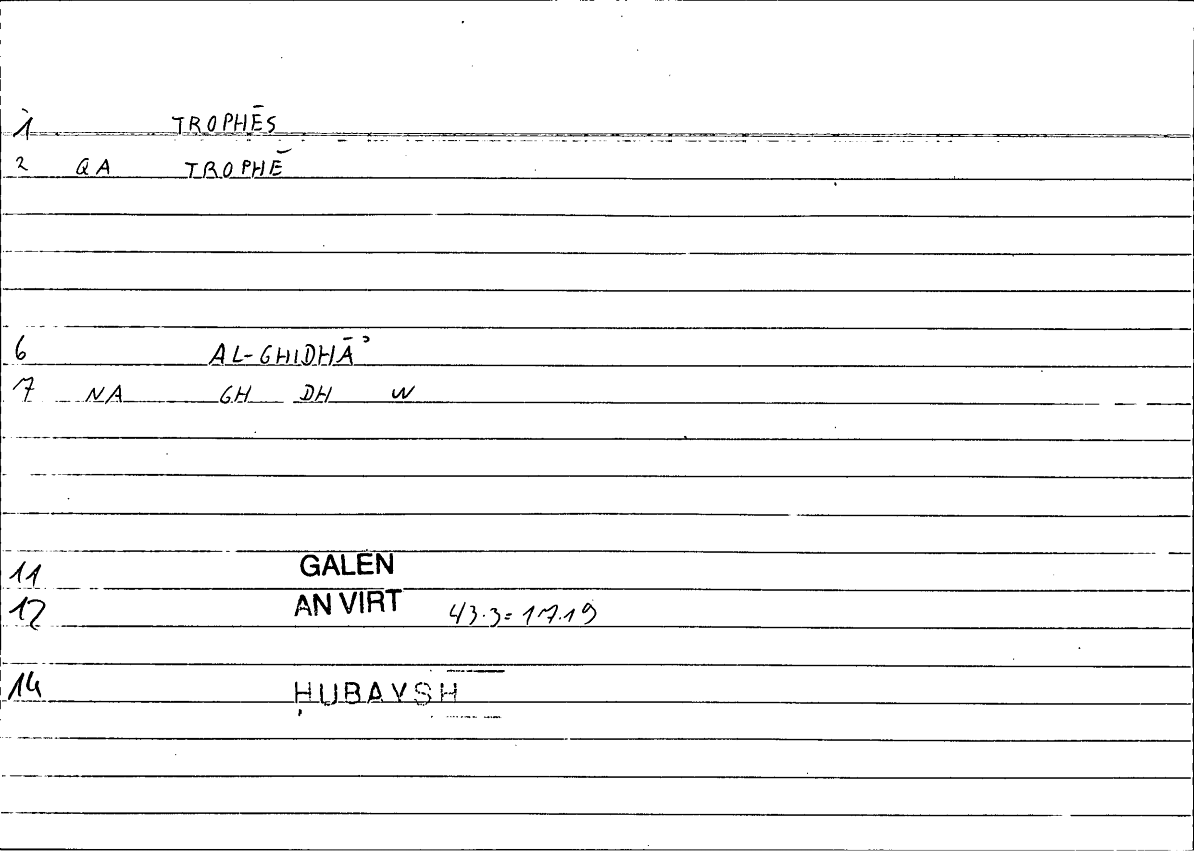 1 TROPHĒS
2 QA TROPHĒ
6 AL-GHIDHĀʾ
7 NA GH DH W
11 GALEN
12 AN VIRT 43.3=17.19
14 ḤUBAYSH